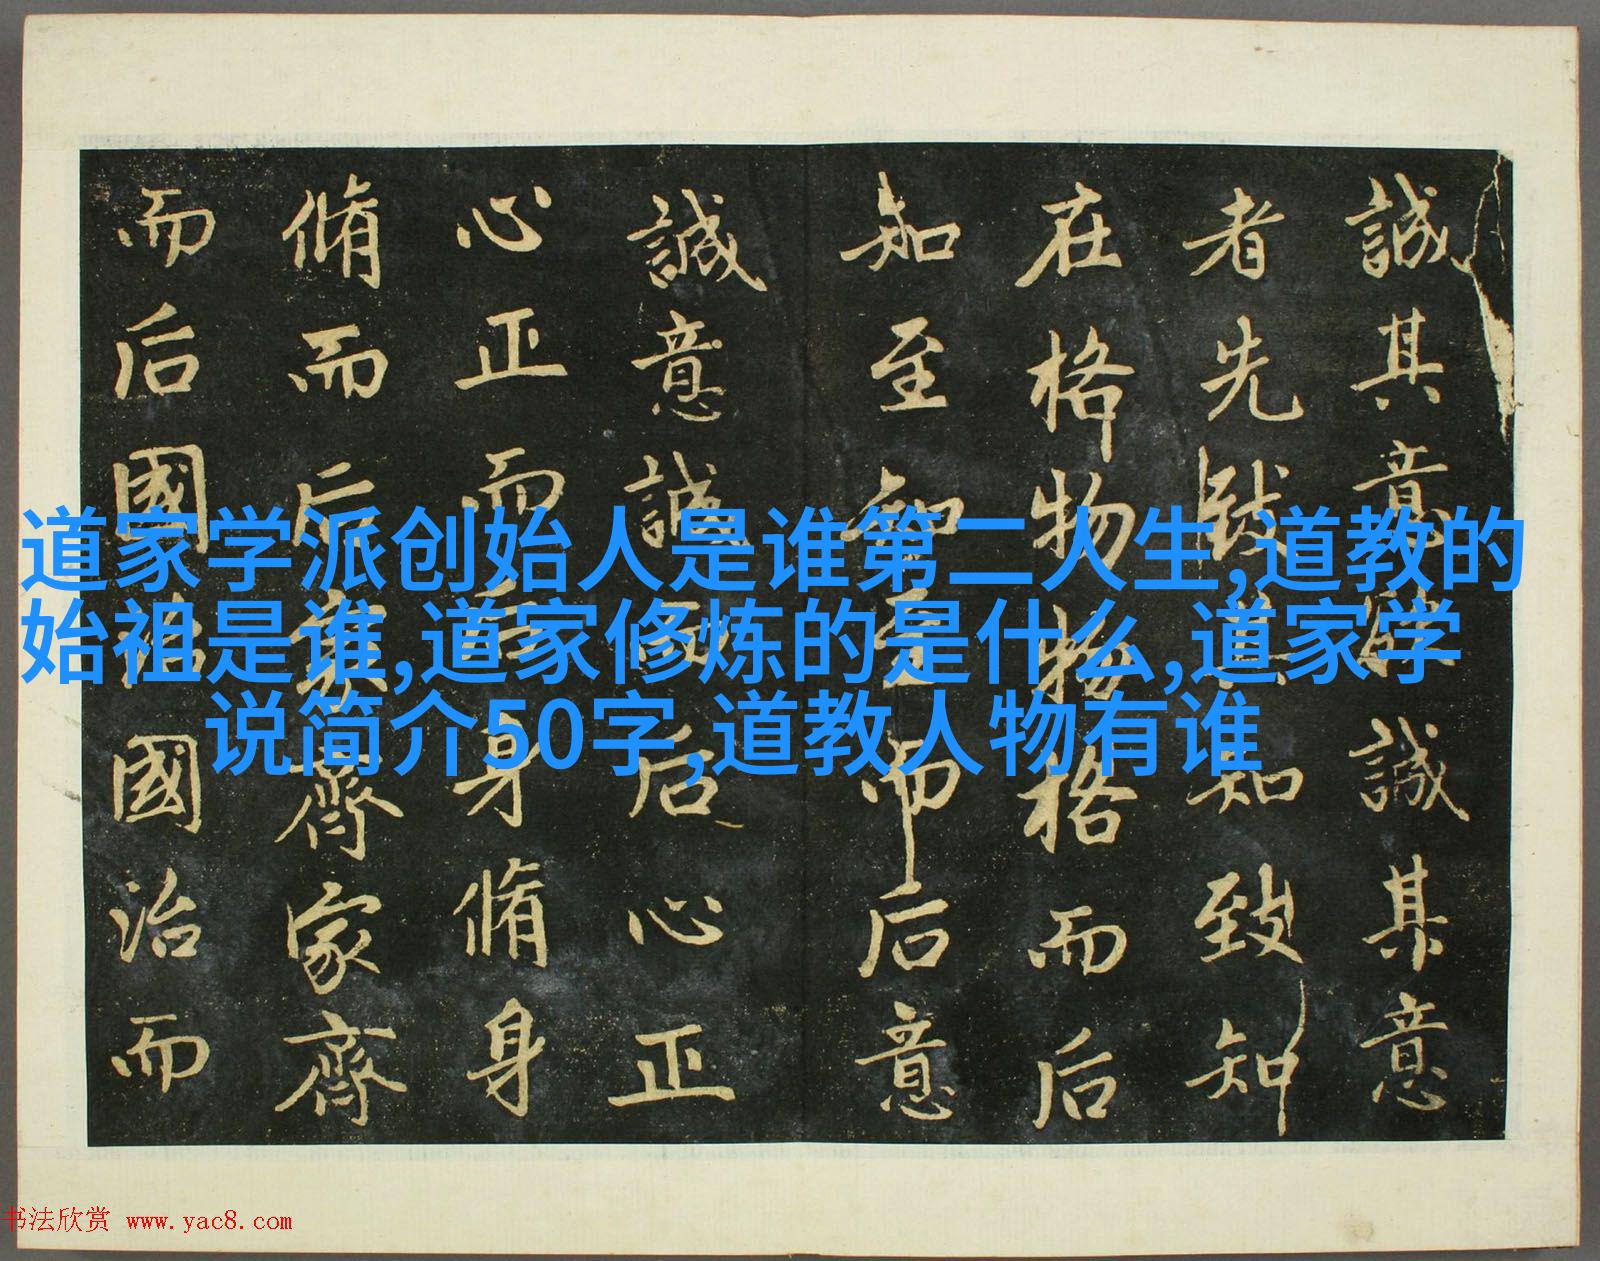 誠其意欲誠其意
者先致其知致知
在格物物格而后
知至知至而后意
誠意誠而后心正
心正而后身脩身
脩而后家齊家齊
而后國治國治而
道家学派创始人是谁第二人生,道教的
始祖是谁,道家修炼的是什么,道家学
说简介50字,道教人物有谁
书法欣赏 www.yac8.com